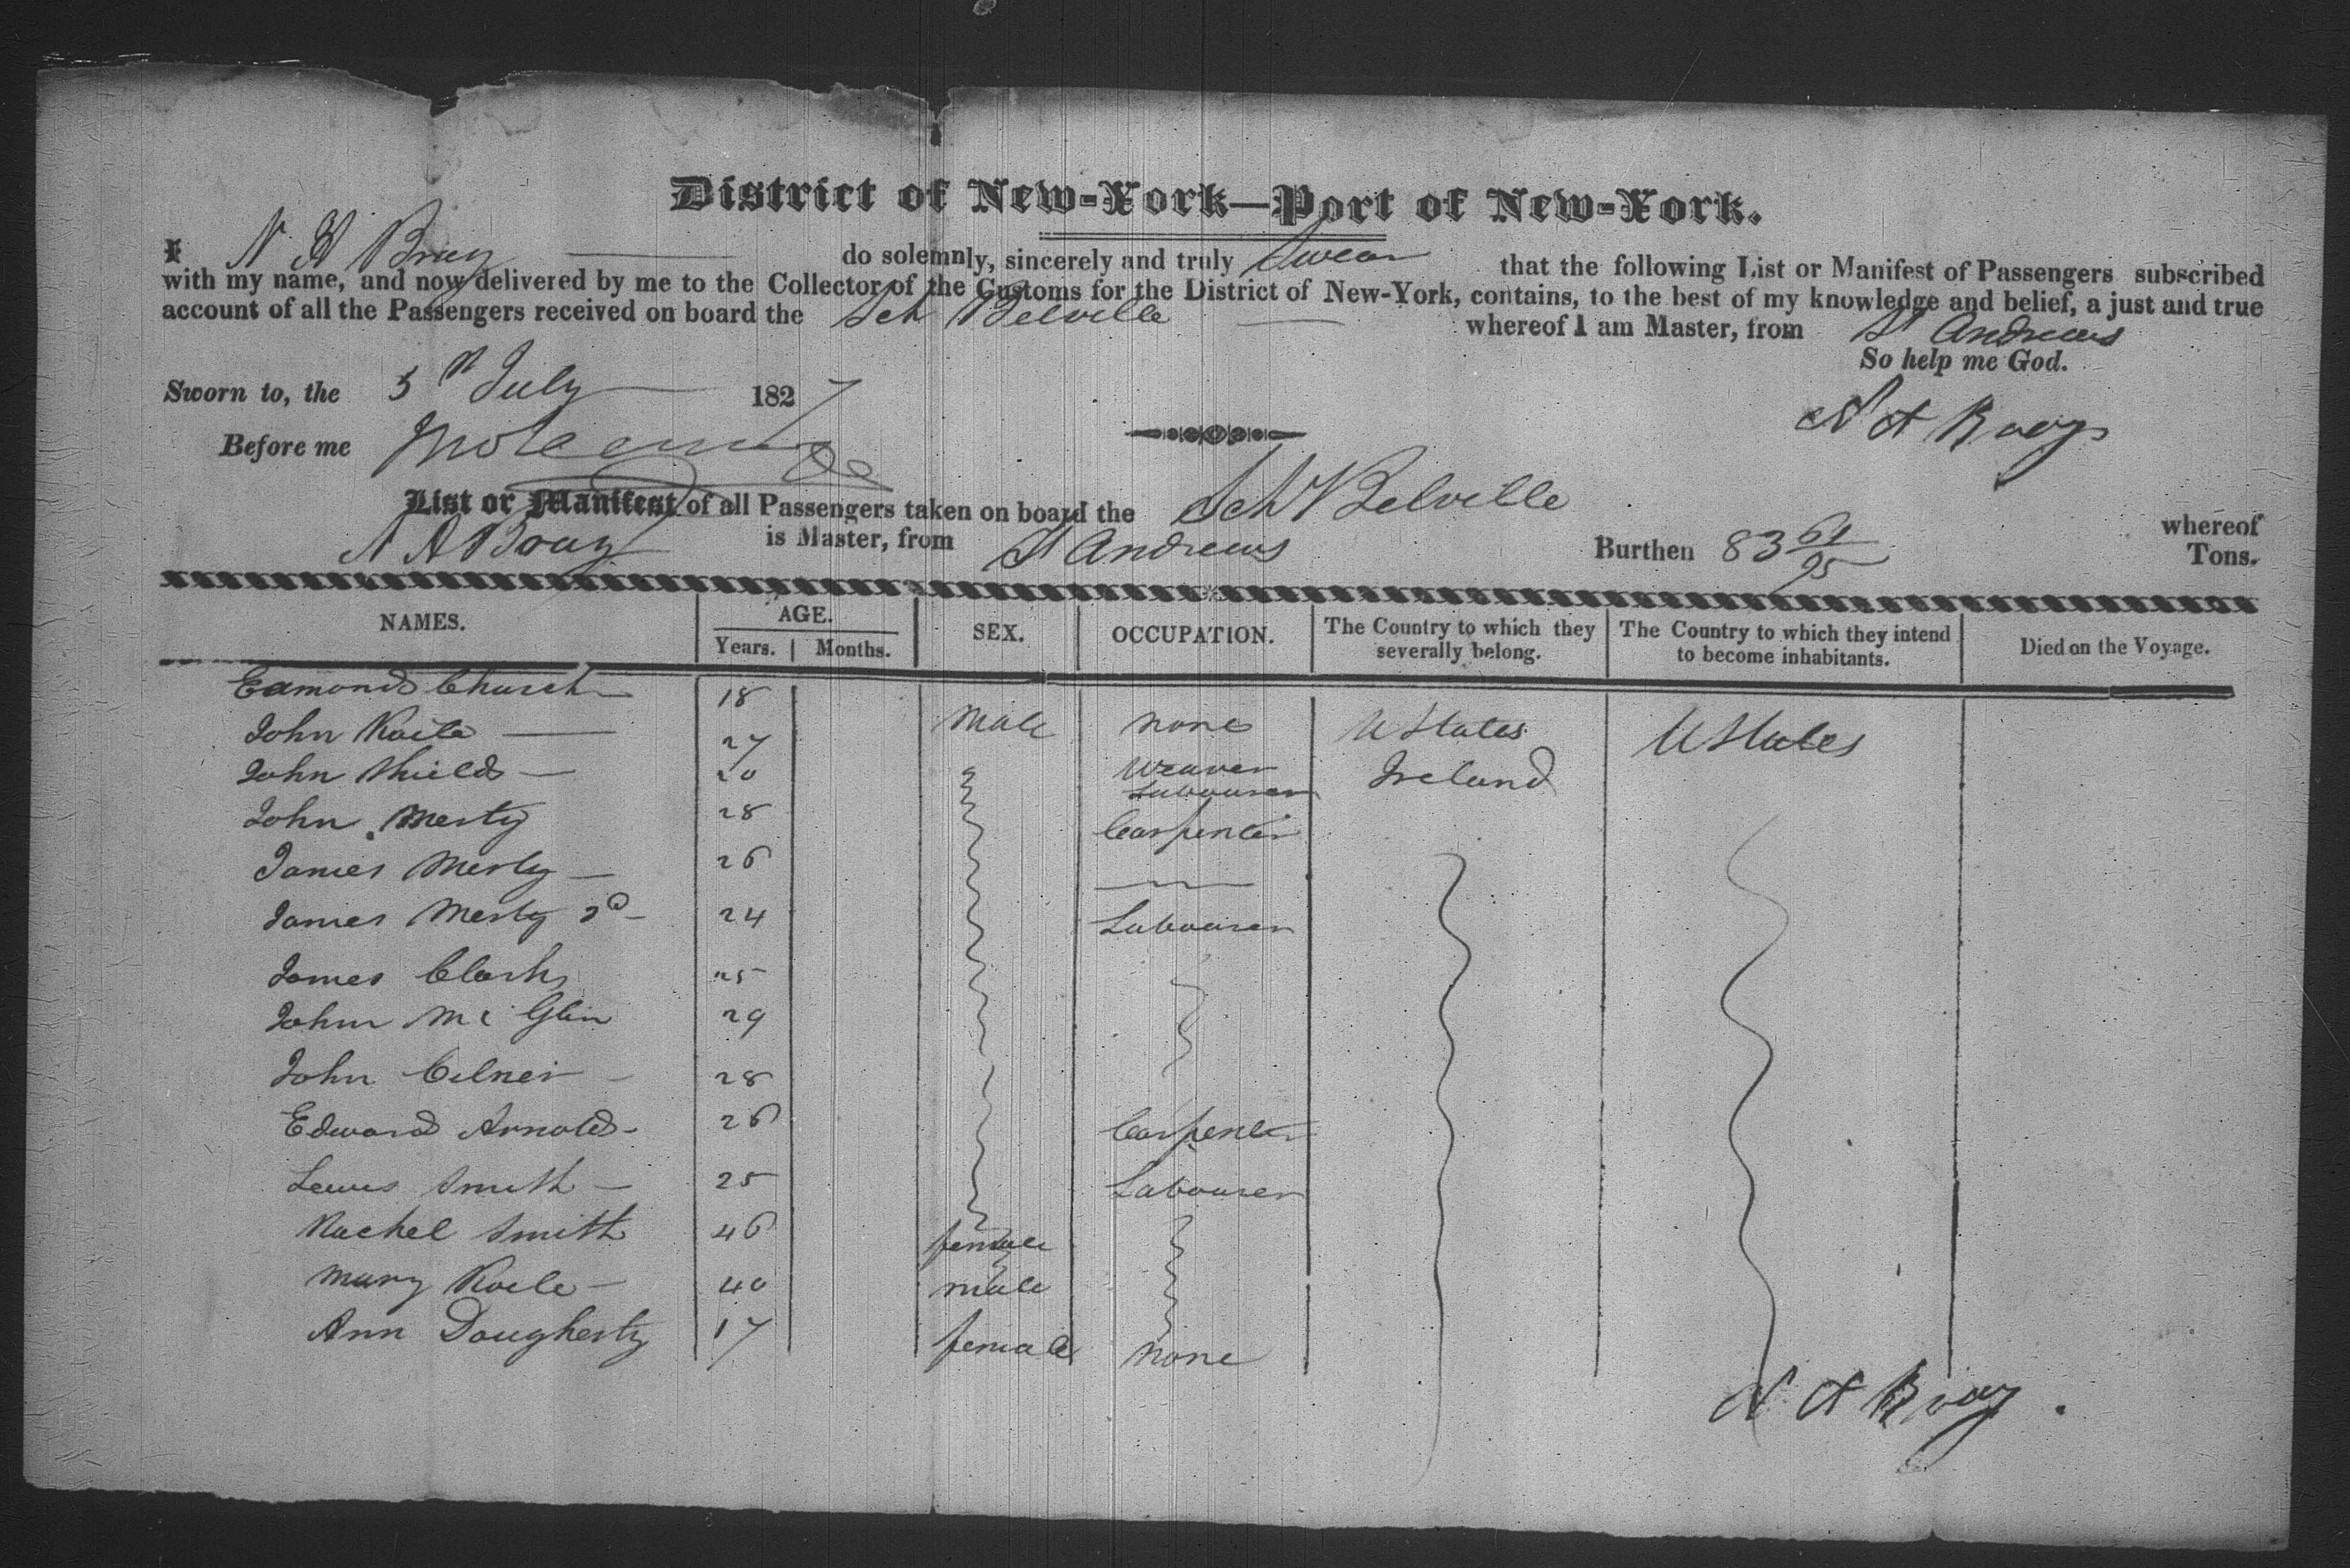 District of New-York—Port of New-York.
I N A Bray do solemnly, sincerely and truly Swear that the following List or Manifest of Passengers subscribed
with my name, and now delivered by me to the Collector of the Customs for the District of New-York, contains, to the best of my knowledge and belief, a just and true
account of all the Passengers received on board the Sch Belville whereof I am Master, from St Andrews
So help me God.
Sworn to, the 5th July 1827
N A Bray
Before me
List or Manifest of all Passengers taken on board the Sch Belville whereof
N A Bray is Master, from St Andrews Burthen 83 61/95 Tons.
NAMES. AGE. Years. Months. SEX. OCCUPATION. The Country to which they severally belong. The Country to which they intend to become inhabitants. Died on the Voyage.
Edmond Church 18 Male none U States U States
John 27 Weaver Ireland
John Shields 20 Labourer
John Merty 28 Carpenter
James Merty 26
James Merty 2d 24 Labourer
James Clark 25
John Mc Glin 29
John 28
Edward Arnold 26 Carpenter
Lewis Smith 25 Labourer
Rachel Smith 46 female
Mary 40 male
Ann Dougherty 17 female none
N A Bray.